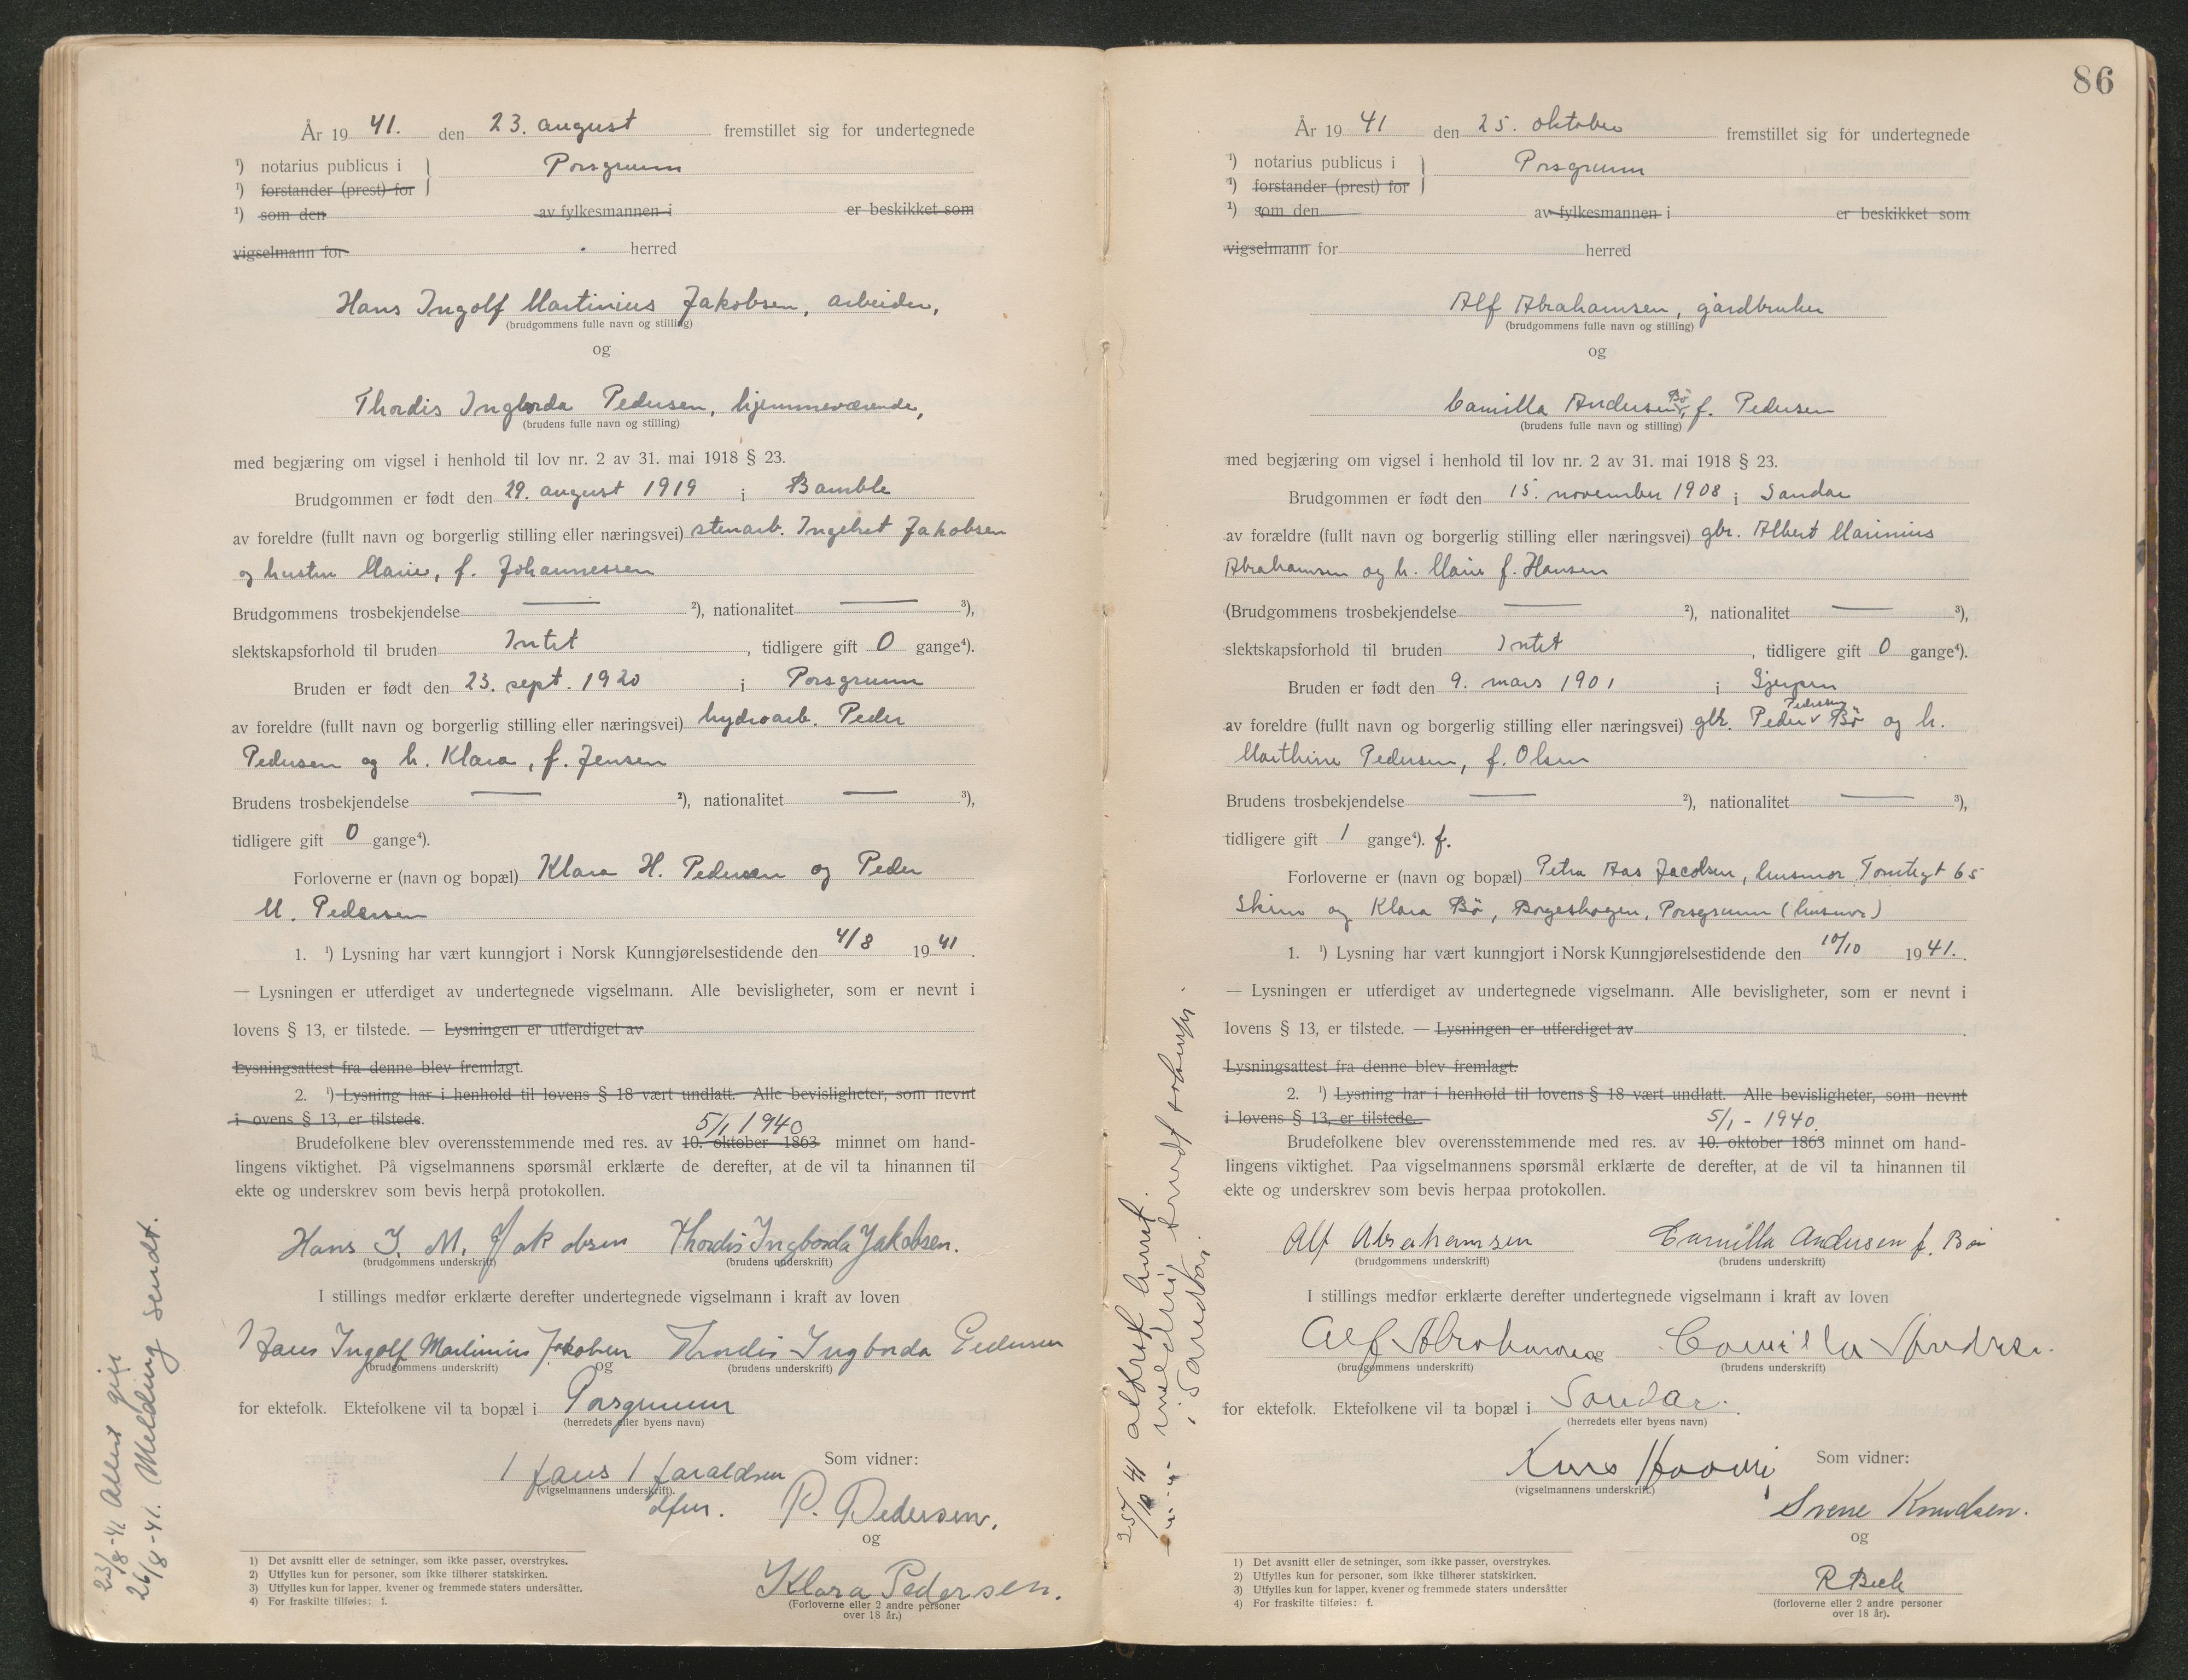 År 19 41. den 23. august fremstillet sig for undertegnede
¹) notarius publicus i } Porsgrunn
¹) forstander (prest) for
¹) som den av fylkesmannen i er beskikket som
vigselmann for herred
Hans Ingolf Martinius Jakobsen, arbeider,
(brudgommens fulle navn og stilling)
og
Thordis Ingborda Pedersen, hjemmeværende,
(brudens fulle navn og stilling)
med begjæring om vigsel i henhold til lov nr. 2 av 31. mai 1918 § 23.
Brudgommen er født den 29. august 1919 i Bamble
av foreldre (fullt navn og borgerlig stilling eller næringsvei) stenarb. Ingebret Jakobsen
og hustru Marie, f. Johannessen
Brudgommens trosbekjendelse — ²), nationalitet — ³),
slektskapsforhold til bruden Intet, tidligere gift 0 gange⁴).
Bruden er født den 23. sept. 1920 i Porsgrunn
av foreldre (fullt navn og borgerlig stilling eller næringsvei) hydroarb. Peder
Pedersen og h. Klara, f. Jensen
Brudens trosbekjendelse — ²), nationalitet — ³),
tidligere gift 0 gange⁴).
Forloverne er (navn og bopæl) Klara H. Pedersen og Peder
M. Pedersen
1. ¹) Lysning har vært kunngjort i Norsk Kunngjørelsestidende den 4/8 19 41.
— Lysningen er utferdiget av undertegnede vigselmann. Alle bevisligheter, som er nevnt i
lovens § 13, er tilstede. — Lysningen er utferdiget av
Lysningsattest fra denne blev fremlagt.
2. ¹) Lysning har i henhold til lovens § 18 vært undlatt. Alle bevisligheter, som nevnt
i ovens § 13, er tilstede.
5/1 1940
Brudefolkene blev overensstemmende med res. av 10. oktober 1863 minnet om hand-
lingens viktighet. På vigselmannens spørsmål erklærte de derefter, at de vil ta hinannen til
ekte og underskrev som bevis herpå protokollen.
Hans I. M. Jakobsen Thordis Ingborda Jakobsen.
(brudgommens underskrift) (brudens underskrift)
I stillings medfør erklærte derefter undertegnede vigselmann i kraft av loven
Hans Ingolf Martinius Jakobsen Thordis Ingborda Pedersen
(brudgommens underskrift) og (brudens underskrift)
for ektefolk. Ektefolkene vil ta bopæl i Porsgrunn
(herredets eller byens navn)
Hans Haraldsen Som vidner:
(vigselmannens underskrift).
dfm. P. Pedersen.
og
Klara Pedersen.
(Forloverne eller 2 andre personer
over 18 år.)
1) Det avsnitt eller de setninger, som ikke passer, overstrykes.
2) Utfylles kun for personer, som ikke tilhører statskirken.
3) Utfylles kun for lapper, kvener og fremmede staters undersåtter.
4) For fraskilte tilføies: f.
23/8-41 Attest gitt
26/8-41. Melding sendt.
86
År 19 41 den 25. oktober fremstillet sig for undertegnede
¹) notarius publicus i } Porsgrunn
¹) forstander (prest) for
¹) som den av fylkesmannen i er beskikket som
vigselmann for herred
Alf Abrahamsen, gårdbruker
(brudgommens fulle navn og stilling)
og
Camilla Andersen Bö, f. Pedersen
(brudens fulle navn og stilling)
med begjæring om vigsel i henhold til lov nr. 2 av 31. mai 1918 § 23.
Brudgommen er født den 15. november 1908 i Sandar
av forældre (fullt navn og borgerlig stilling eller næringsvei) gbr. Albert Marinius
Abrahamsen og h. Marie f. Hansen
(Brudgommens trosbekjendelse — ²), nationalitet — ³),
slektskapsforhold til bruden Intet, tidligere gift 0 gange⁴).
Bruden er født den 9. mars 1901 i Gjerpen
av foreldre (fullt navn og borgerlig stilling eller næringsvei) gbr. Peder Pedersen Bö og h.
Marthine Pedersen, f. Olsen
Brudens trosbekjendelse — ²), nationalitet — ³),
tidligere gift 1 gange⁴). f.
Forloverne er (navn og bopæl) Petra Aas Jacobsen, husmor Tomtegt 65
Skien og Klara Bö, Borgeshagen, Porsgrunn (husmor)
1. ¹) Lysning har vært kunngjort i Norsk Kunngjørelsestidende den 10/10 19 41.
— Lysningen er utferdiget av undertegnede vigselmann. Alle bevisligheter, som er nevnt i
lovens § 13, er tilstede. — Lysningen er utferdiget av
Lysningsattest fra denne blev fremlagt.
2. ¹) Lysning har i henhold til lovens § 18 vært undlatt. Alle bevisligheter, som nevnt
i lovens § 13, er tilstede.
5/1 - 1940.
Brudefolkene blev overensstemmende med res. av 10. oktober 1863 minnet om hand-
lingens viktighet. Paa vigselmannens spørsmål erklærte de derefter, at de vil ta hinannen til
ekte og underskrev som bevis herpaa protokollen.
Alf Abrahamsen Camilla Andersen f. Bö
(brudgommens underskrift) (brudens underskrift)
I stillings medfør erklærte derefter undertegnede vigselmann i kraft av loven
Alf Abrahamsen og Camilla Andersen
(brudgommens underskrift) (brudens underskrift)
for ektefolk. Ektefolkene vil ta bopæl i Sandar.
(herredets eller byens navn)
Som vidner:
(vigselmannens underskrift.)
Knudsen.
og
R Beck
(forloverne eller 2 andre personer
over 18 år).
1) Det avsnitt eller de setninger, som ikke passer, overstrykes.
2) Utfylles kun for personer, som ikke tilhører statskirken.
3) Utfylles kun for lapper, kvener og fremmede staters undersåtter
4) For fraskilte tilføies: f.
25/10 41
meddelt sendt
i Sandar.